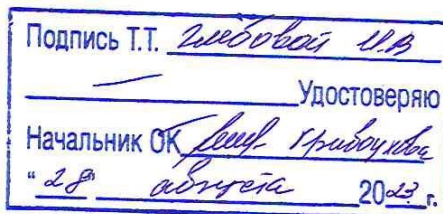 Подпись Т.Т. Глебовой И.В
Удостоверяю
Начальник ОК
"28" августа 2023 г.